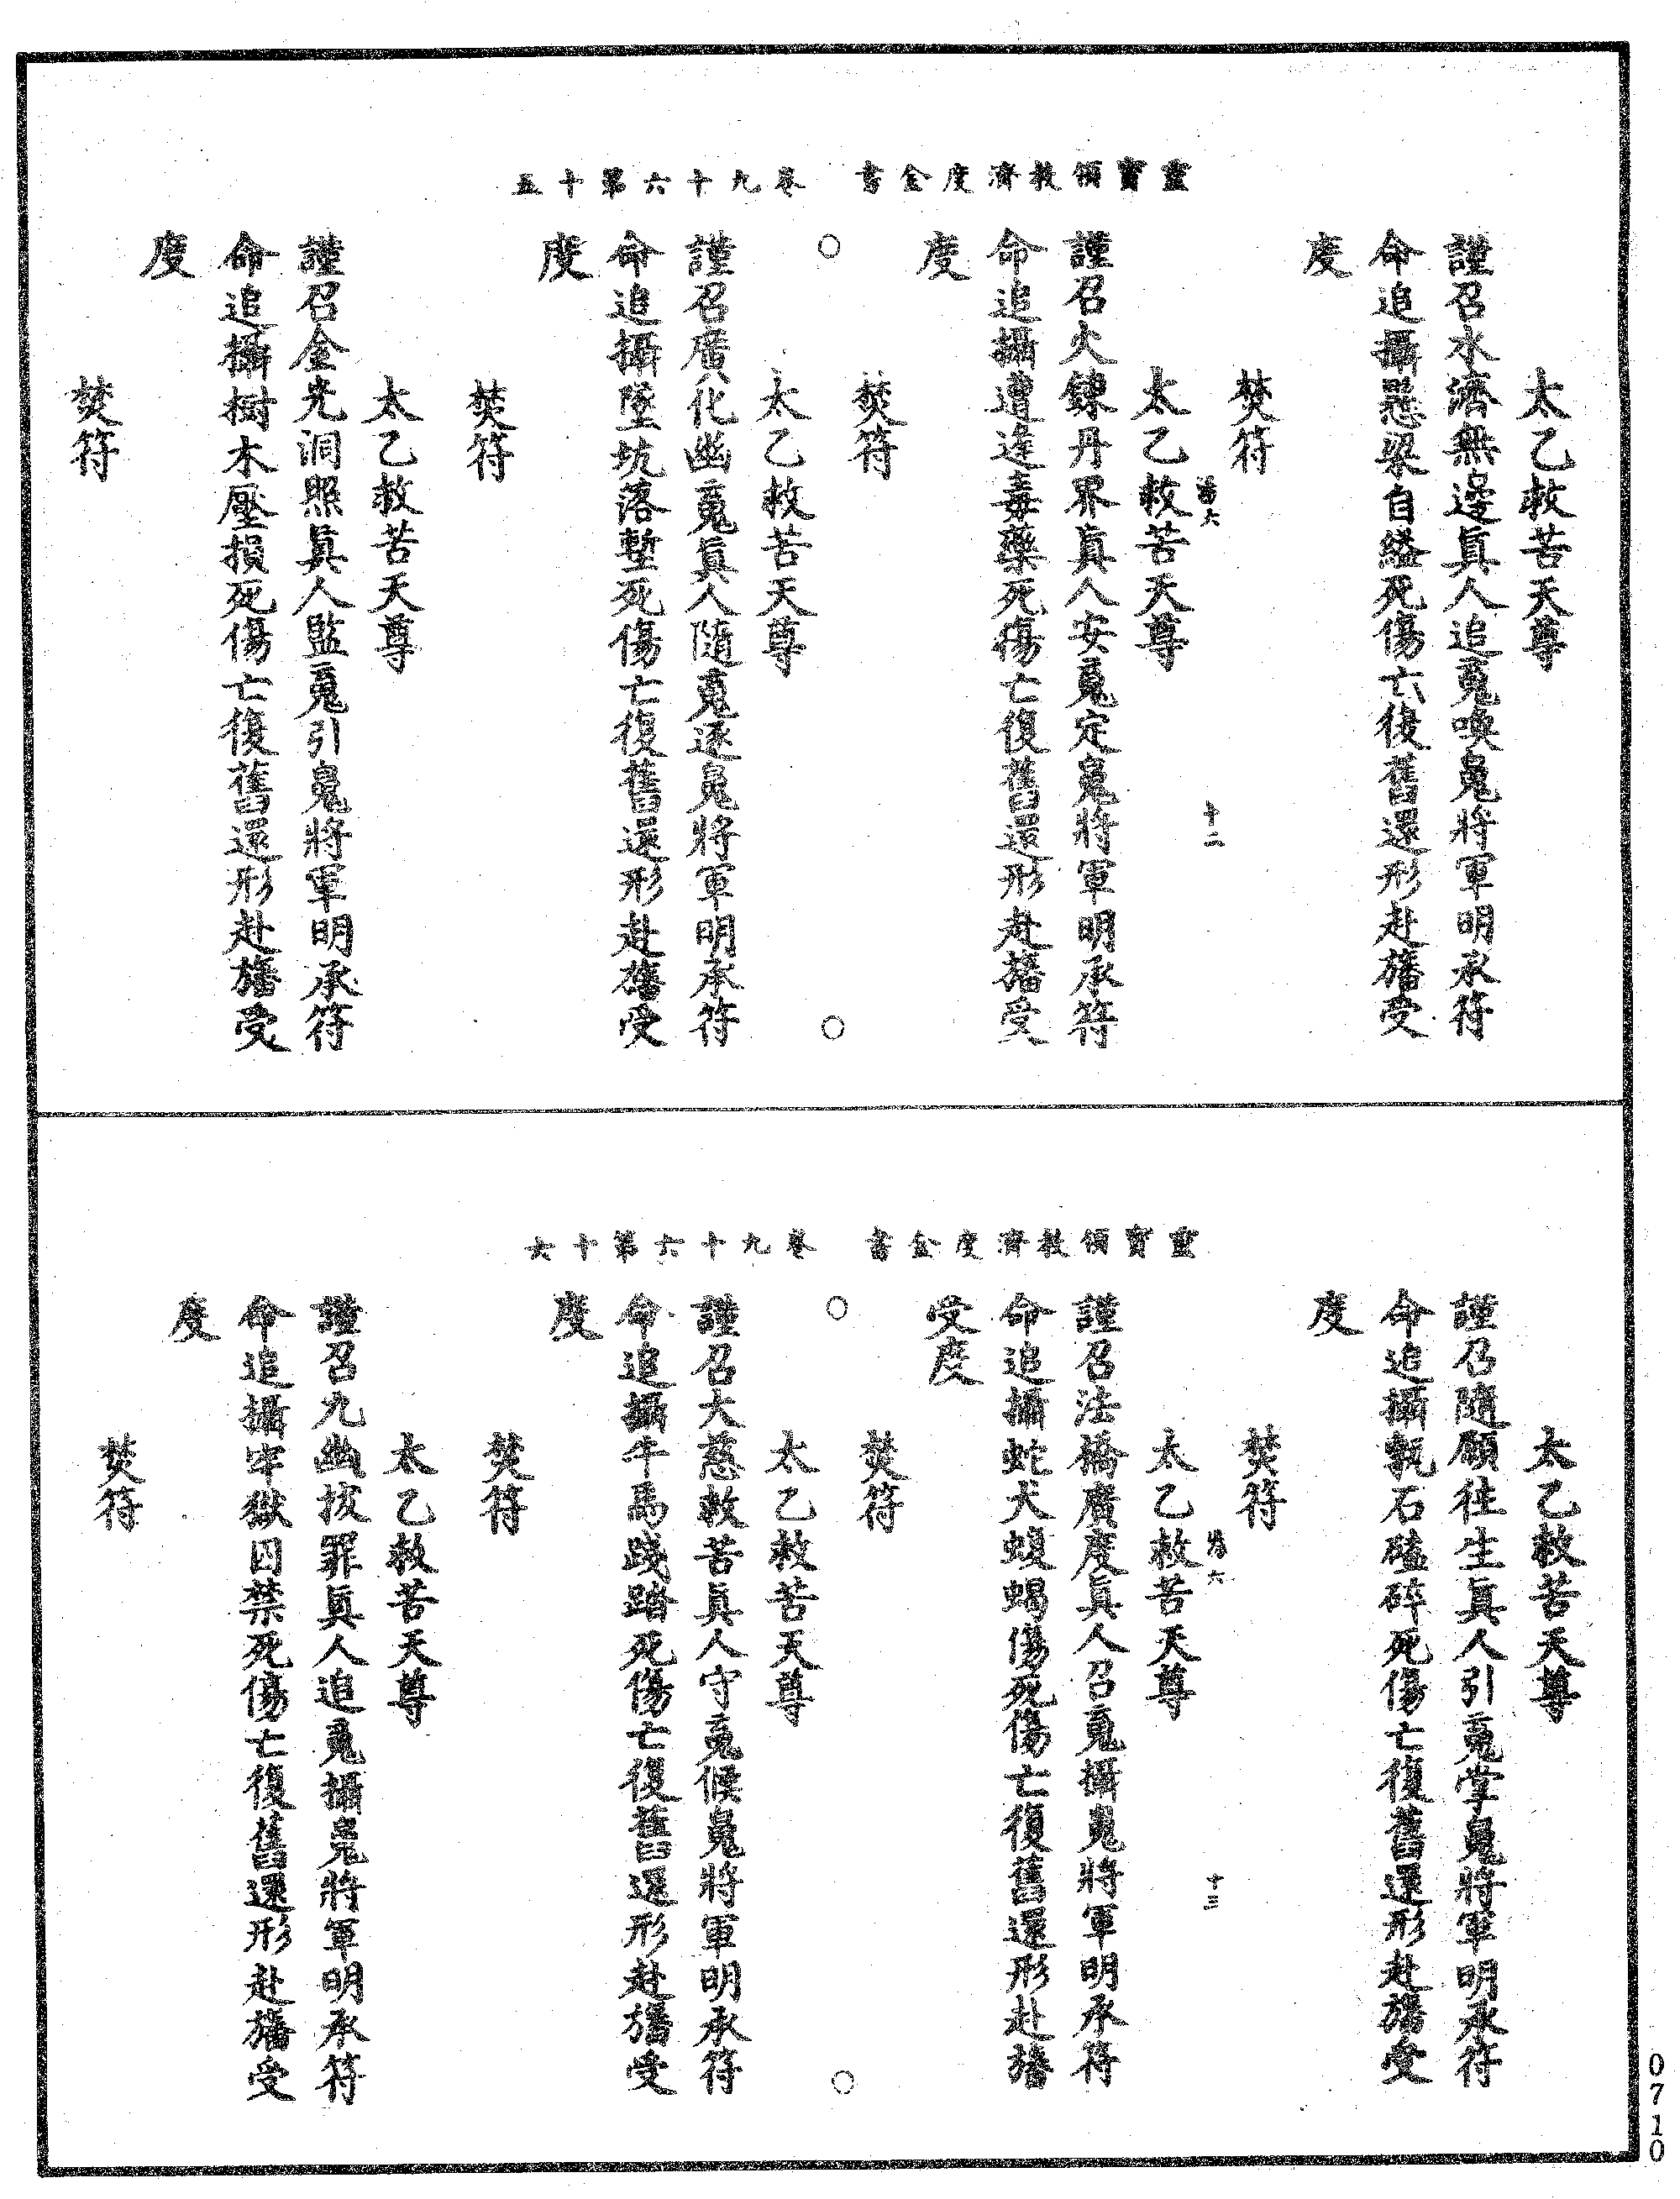 靈寶領教濟度金書　卷九十六第十五
太乙救苦天尊
謹召水濟無邊眞人追䰟喚䰟將軍明承符
命追攝懸梁自縊死傷亡復舊還形赴旛受
度
焚符
十二
太乙救苦天尊
謹召火鍊丹界眞人安䰟定䰟將軍明承符
命追攝遭逢毒藥死傷亡復舊還形赴旛受
度
焚符
太乙救苦天尊
謹召廣化幽䰟眞人隨䰟逐䰟將軍明承符
命追攝墜坑落塹死傷亡復舊還形赴旛受
度
焚符
太乙救苦天尊
謹召金光洞照眞人監䰟引䰟將軍明承符
命追攝樹木壓損死傷亡復舊還形赴旛受
度
焚符
靈寶領教濟度金書　卷九十六第十六
太乙救苦天尊
謹召隨願往生眞人引䰟掌䰟將軍明承符
命追攝甎石磕碎死傷亡復舊還形赴旛受
度
焚符
十三
太乙救苦天尊
謹召法橋廣度眞人召䰟攝䰟將軍明承符
命追攝蛇犬蝮蝎傷死傷亡復舊還形赴旛
受度
焚符
太乙救苦天尊
謹召大慈救苦眞人守䰟候䰟將軍明承符
命追攝牛馬踐踏死傷亡復舊還形赴旛受
度
焚符
太乙救苦天尊
謹召九幽拔罪眞人追䰟攝䰟將軍明承符
命追攝牢獄囚禁死傷亡復舊還形赴旛受
度
焚符
0710